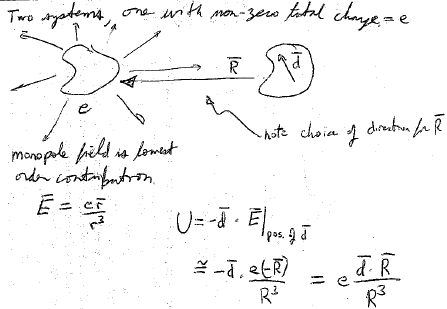 Two systems, one with non-zero total charge = e
R̄
d̄
e
note choice of direction for R̄
monopole field is lowest
order contribution.
Ē = e r̄ / r³
U = -d̄ · Ē |pos. of d̄
≅ -d̄ · e(-R̄) / R³ = e d̄ · R̄ / R³